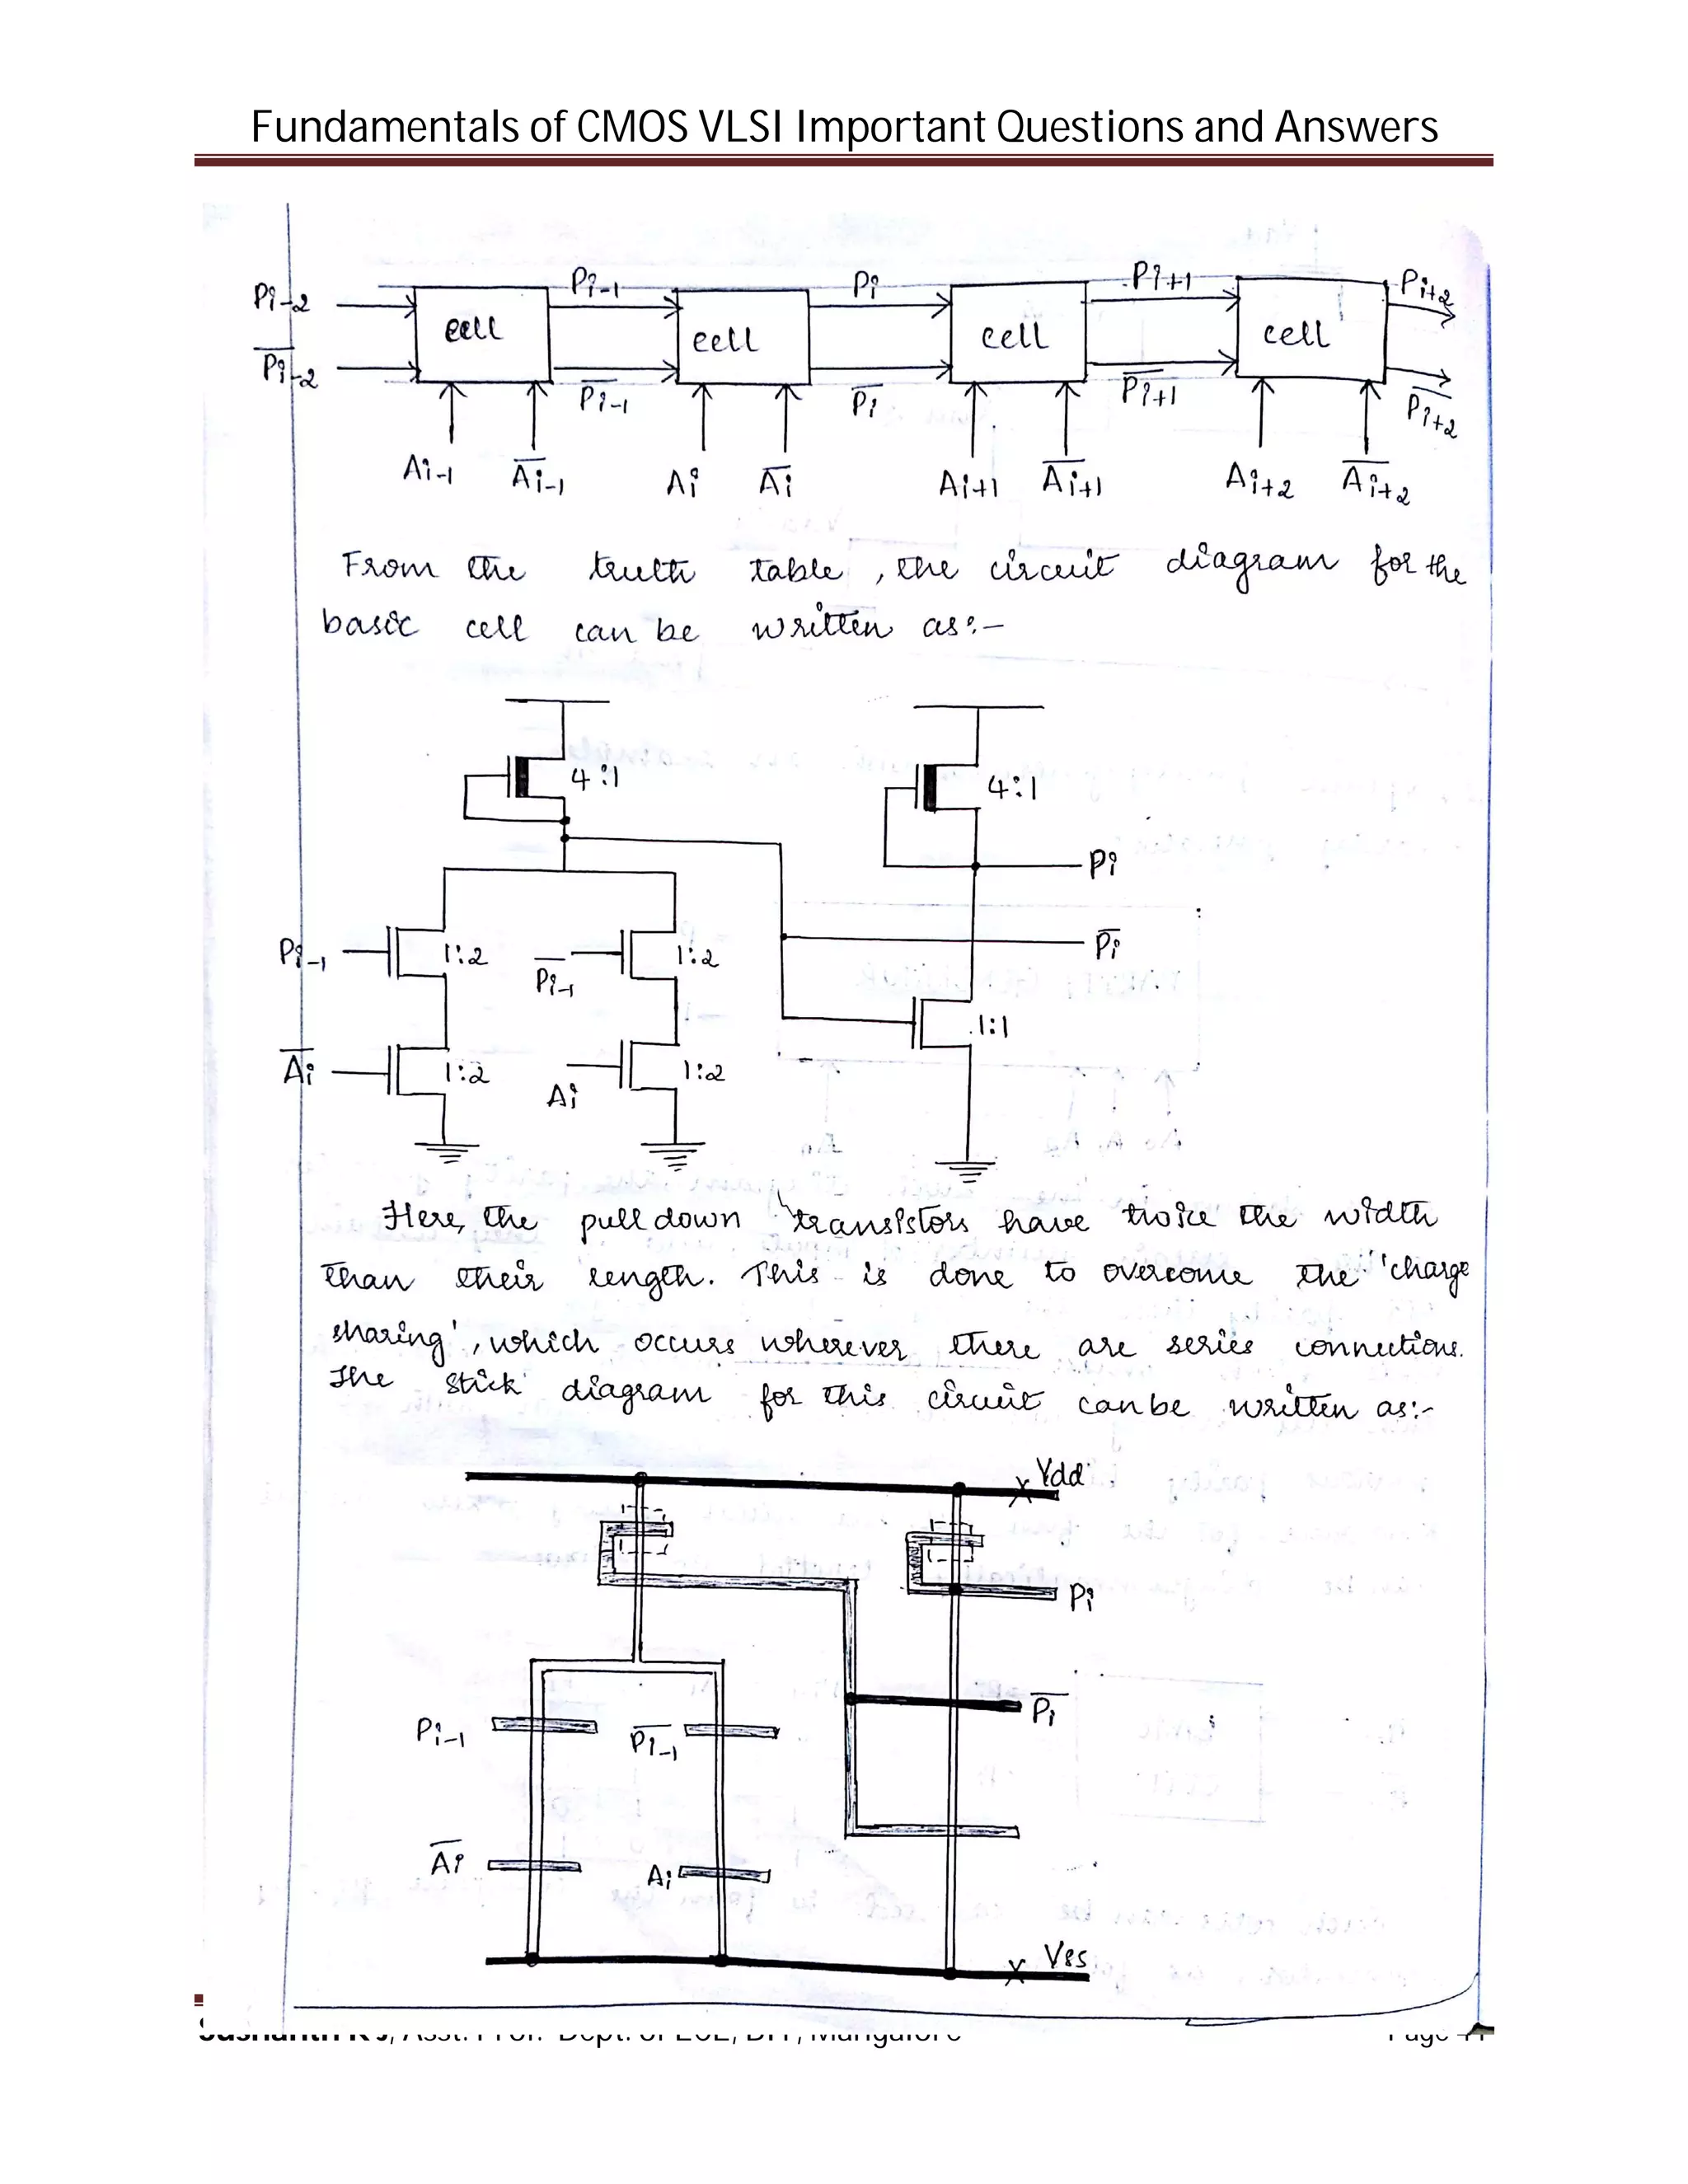 Fundamentals of CMOS VLSI Important Questions and Answers
Pi-2 Pi-1 Pi Pi+1 Pi+2
cell cell cell cell
P̅i-2 P̅i-1 P̅i P̅i+1 P̅i+2
Ai-1 A̅i-1 Ai A̅i Ai+1 A̅i+1 Ai+2 A̅i+2
From the truth table, the circuit diagram for the
basic cell can be written as:-
4:1 4:1
Pi
P̅i
Pi-1 1:2 P̅i-1 1:2
1:1
A̅i 1:2 Ai 1:2
Here, the pull down transistors have twice the width
than their length. This is done to overcome the 'charge
sharing', which occurs wherever there are series connections.
The stick diagram for this circuit can be written as:-
Vdd
Pi
P̅i
Pi-1 P̅i-1
A̅i Ai
Vss